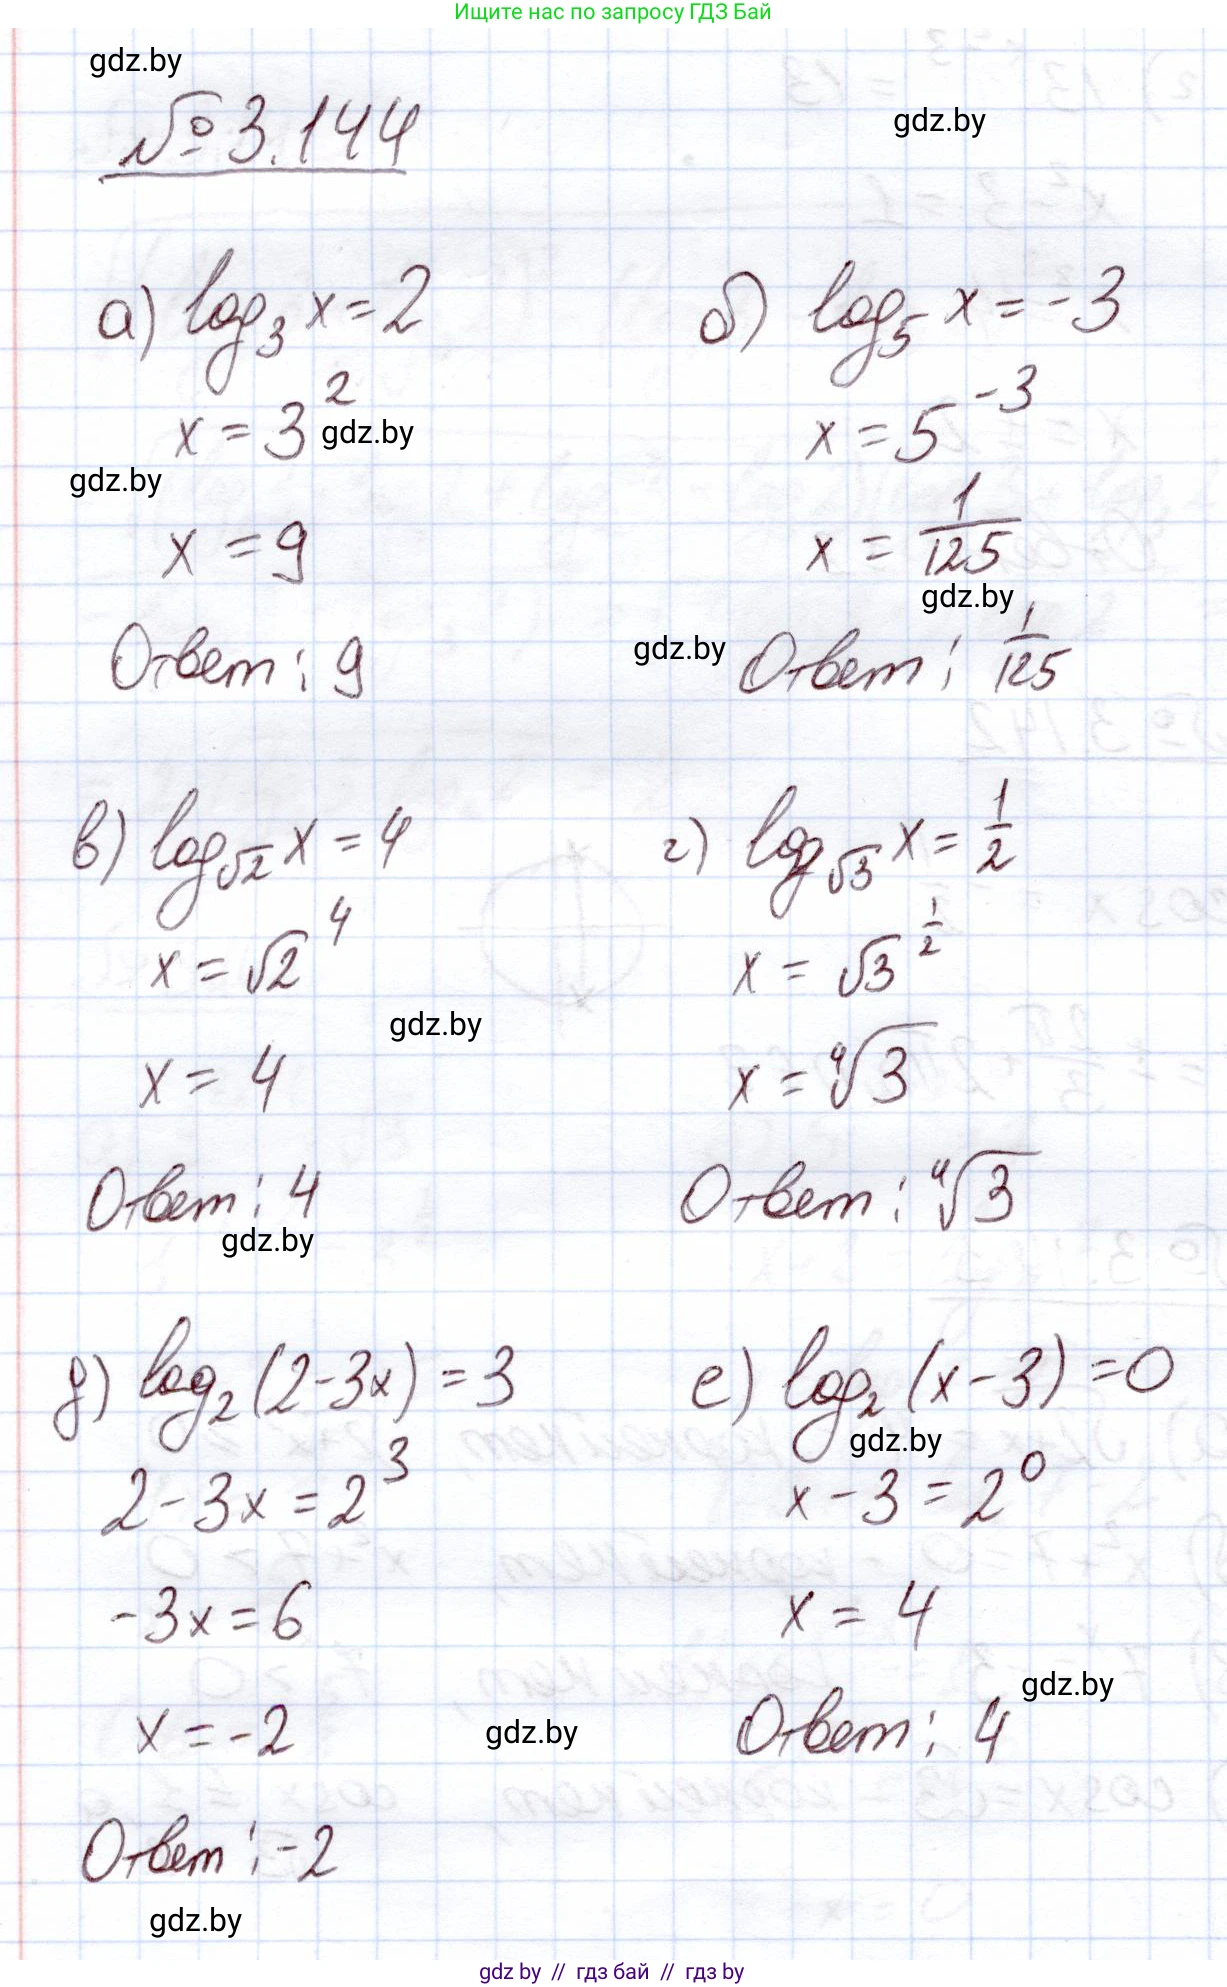 Ищите нас по запросу ГДЗ Бай
gdz.by
№ 3.144
gdz.by
а) log₃ x = 2
x = 3²
gdz.by
gdz.by
x = 9
Ответ: 9
б) log₅ x = -3
x = 5⁻³
x = 1/125
gdz.by
gdz.by
Ответ: 1/125
в) log_√2 x = 4
x = √2⁴
gdz.by
x = 4
Ответ: 4
gdz.by
г) log_√3 x = 1/2
x = √3^(1/2)
x = ⁴√3
Ответ: ⁴√3
д) log₂ (2-3x) = 3
2-3x = 2³
-3x = 6
x = -2
gdz.by
Ответ: -2
gdz.by
е) log₂ (x-3) = 0
gdz.by
x-3 = 2⁰
x = 4
gdz.by
Ответ: 4
gdz by // гдз бай // гдз by